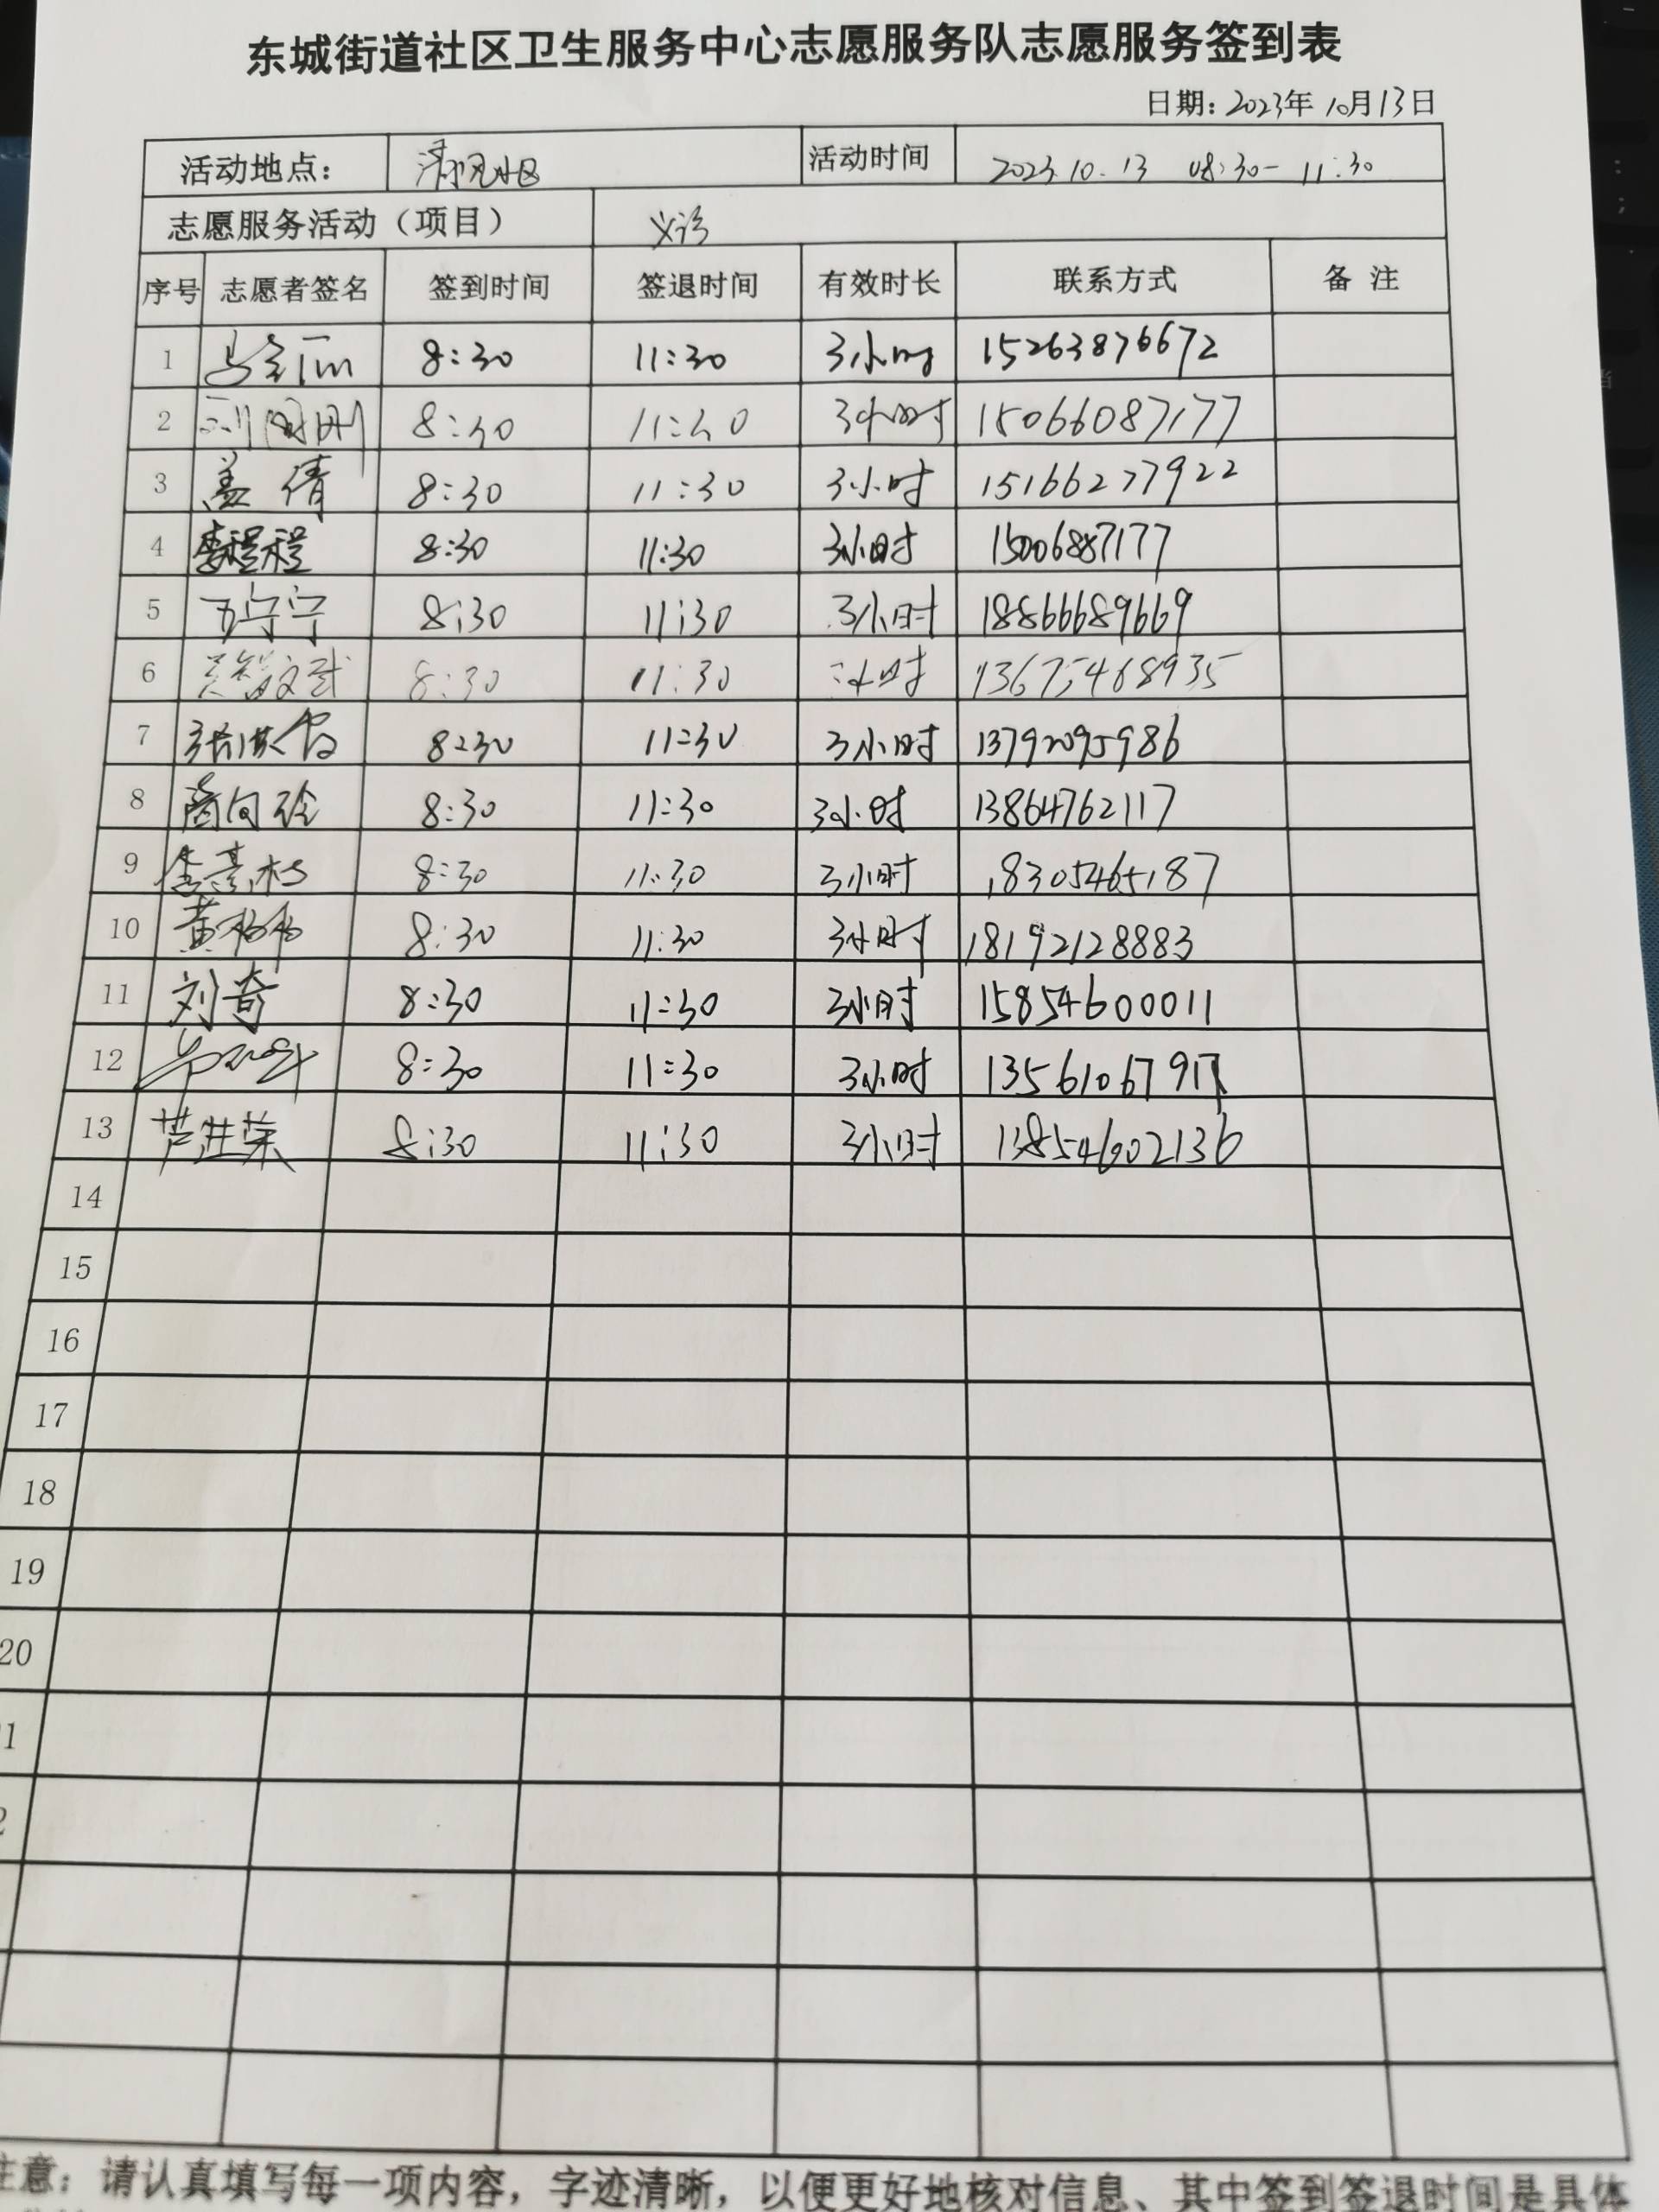 东城街道社区卫生服务中心志愿服务队志愿服务签到表
日期: 2023年 10月13日
活动地点: 清风社区 活动时间 2023.10.13 08:30- 11:30
志愿服务活动（项目） 义诊
序号 志愿者签名 签到时间 签退时间 有效时长 联系方式 备 注
1 8:30 11:30 3小时 15263876672
2 8:30 11:30 3小时 15066087177
3 盖 倩 8:30 11:30 3小时 15166277922
4 李程程 8:30 11:30 3小时 15006887177
5 宁宁 8:30 11:30 3小时 18866689669
6 8:30 11:30 三小时 13675468935
7 8:30 11:30 3小时 13792095986
8 8:30 11:30 3小时 13864762117
9 8:30 11:30 3小时 18305465187
10 8:30 11:30 3小时 18192128883
11 刘奇 8:30 11:30 3小时 15854600011
12 8:30 11:30 3小时
13 芦胜荣 8:30 11:30 3小时
14
15
16
17
18
19
20
1
2
注意: 请认真填写每一项内容，字迹清晰，以便更好地核对信息、其中签到签退时间是具体